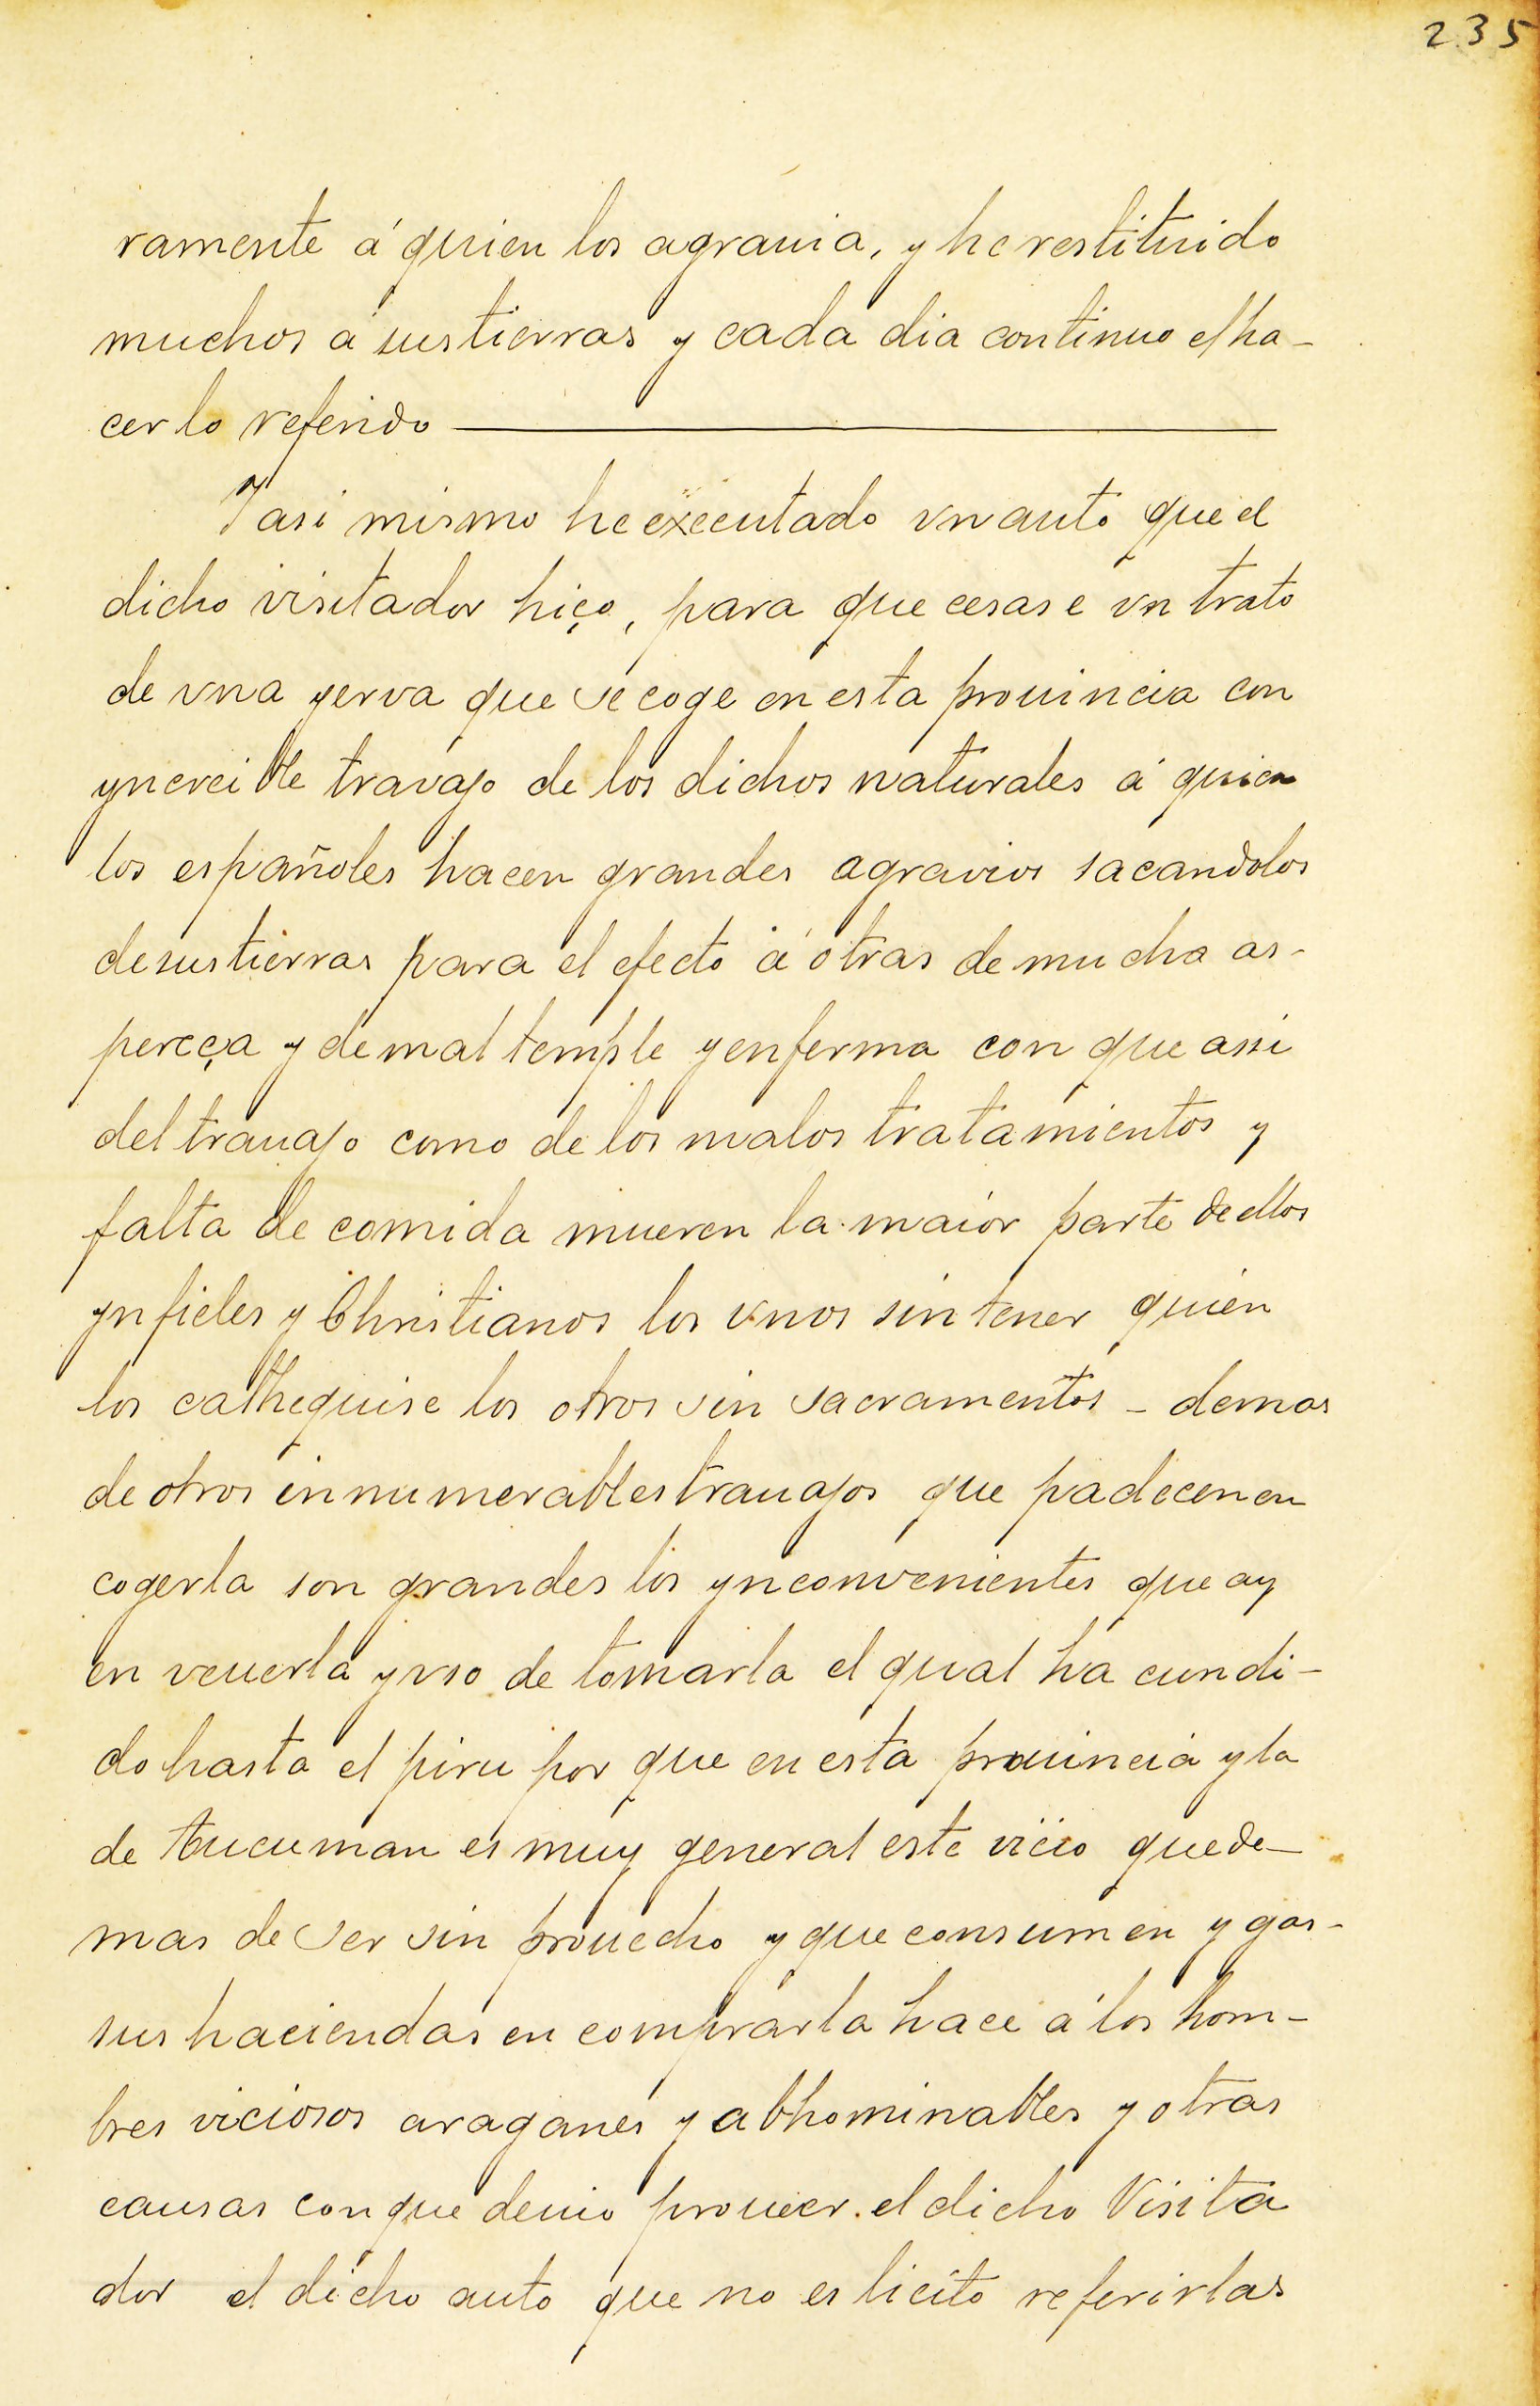 235
ramente á quien los agrauia, y he restituido
muchos á sus tierras y cada dia continuo el ha-
cer lo referido
Y asi mismo he executado vn auto que el
dicho visitador hiço, para que cesase vn trato
de vna yerva que se coge en esta prouincia con
yncreible travajo de los dichos naturales á quien
los españoles hacen grandes agravios sacandolos
de sus tierras para el efecto á otras de mucha as-
pereça y de mal temple y enferma con que assi
del trauajo como de los malos tratamientos y
falta de comida mueren la maior parte de ellos
ynfieles y Christianos los vnos sin tener quien
los cathequise los otros sin sacramentos - demas
de otros innumerables trauajos que padecen en
cogerla son grandes los ynconvenientes que ay
en veuerla y vso de tomarla el qual ha cundi-
do hasta el piru por que en esta prouincia y la
de tucuman es muy general este vicio que de-
mas de ser sin prouecho y que consumen y gas-
sus haciendas en comprarla hace á los hom-
bres viciosos araganes y abhominables y otras
causas con que deuio proueer el dicho Visita
dor el dicho auto que no es licito referirlas